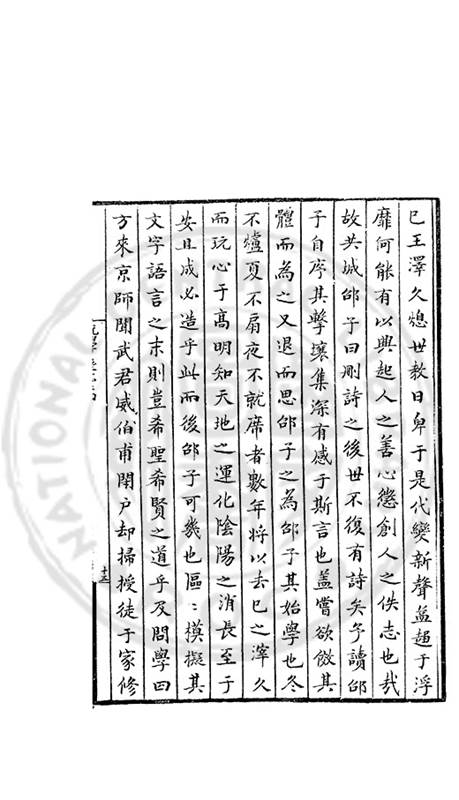 已王澤久熄世教日卑于是代變新聲益趨于浮
靡何能有以興起人之善心懲創人之佚志也哉
故共城邵子曰刪詩之後世不復有詩矣予讀邵
子自序其擊壤集深有感于斯言也盖嘗欲倣其
體而為之又退而思邵子之為邵子其始學也冬
不爐夏不扇夜不就席者數年将以去已之滓久
而玩心于高明知天地之運化陰陽之消長至于
安且成必造乎此而後邵子可幾也區〻模擬其
文字語言之末則豈希聖希賢之道乎及問學四
方來京師聞武君威伯甫閉户却掃授徒于家修
十三
NATIONAL